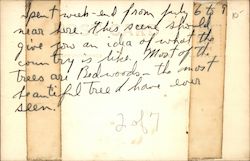 Spent week-end from July 6 to 9
near here. This scene should
give you an idea of what the
country is like. Most of the
trees are Redwoods - the most
beautiful tree I have ever
seen.
2 of 7